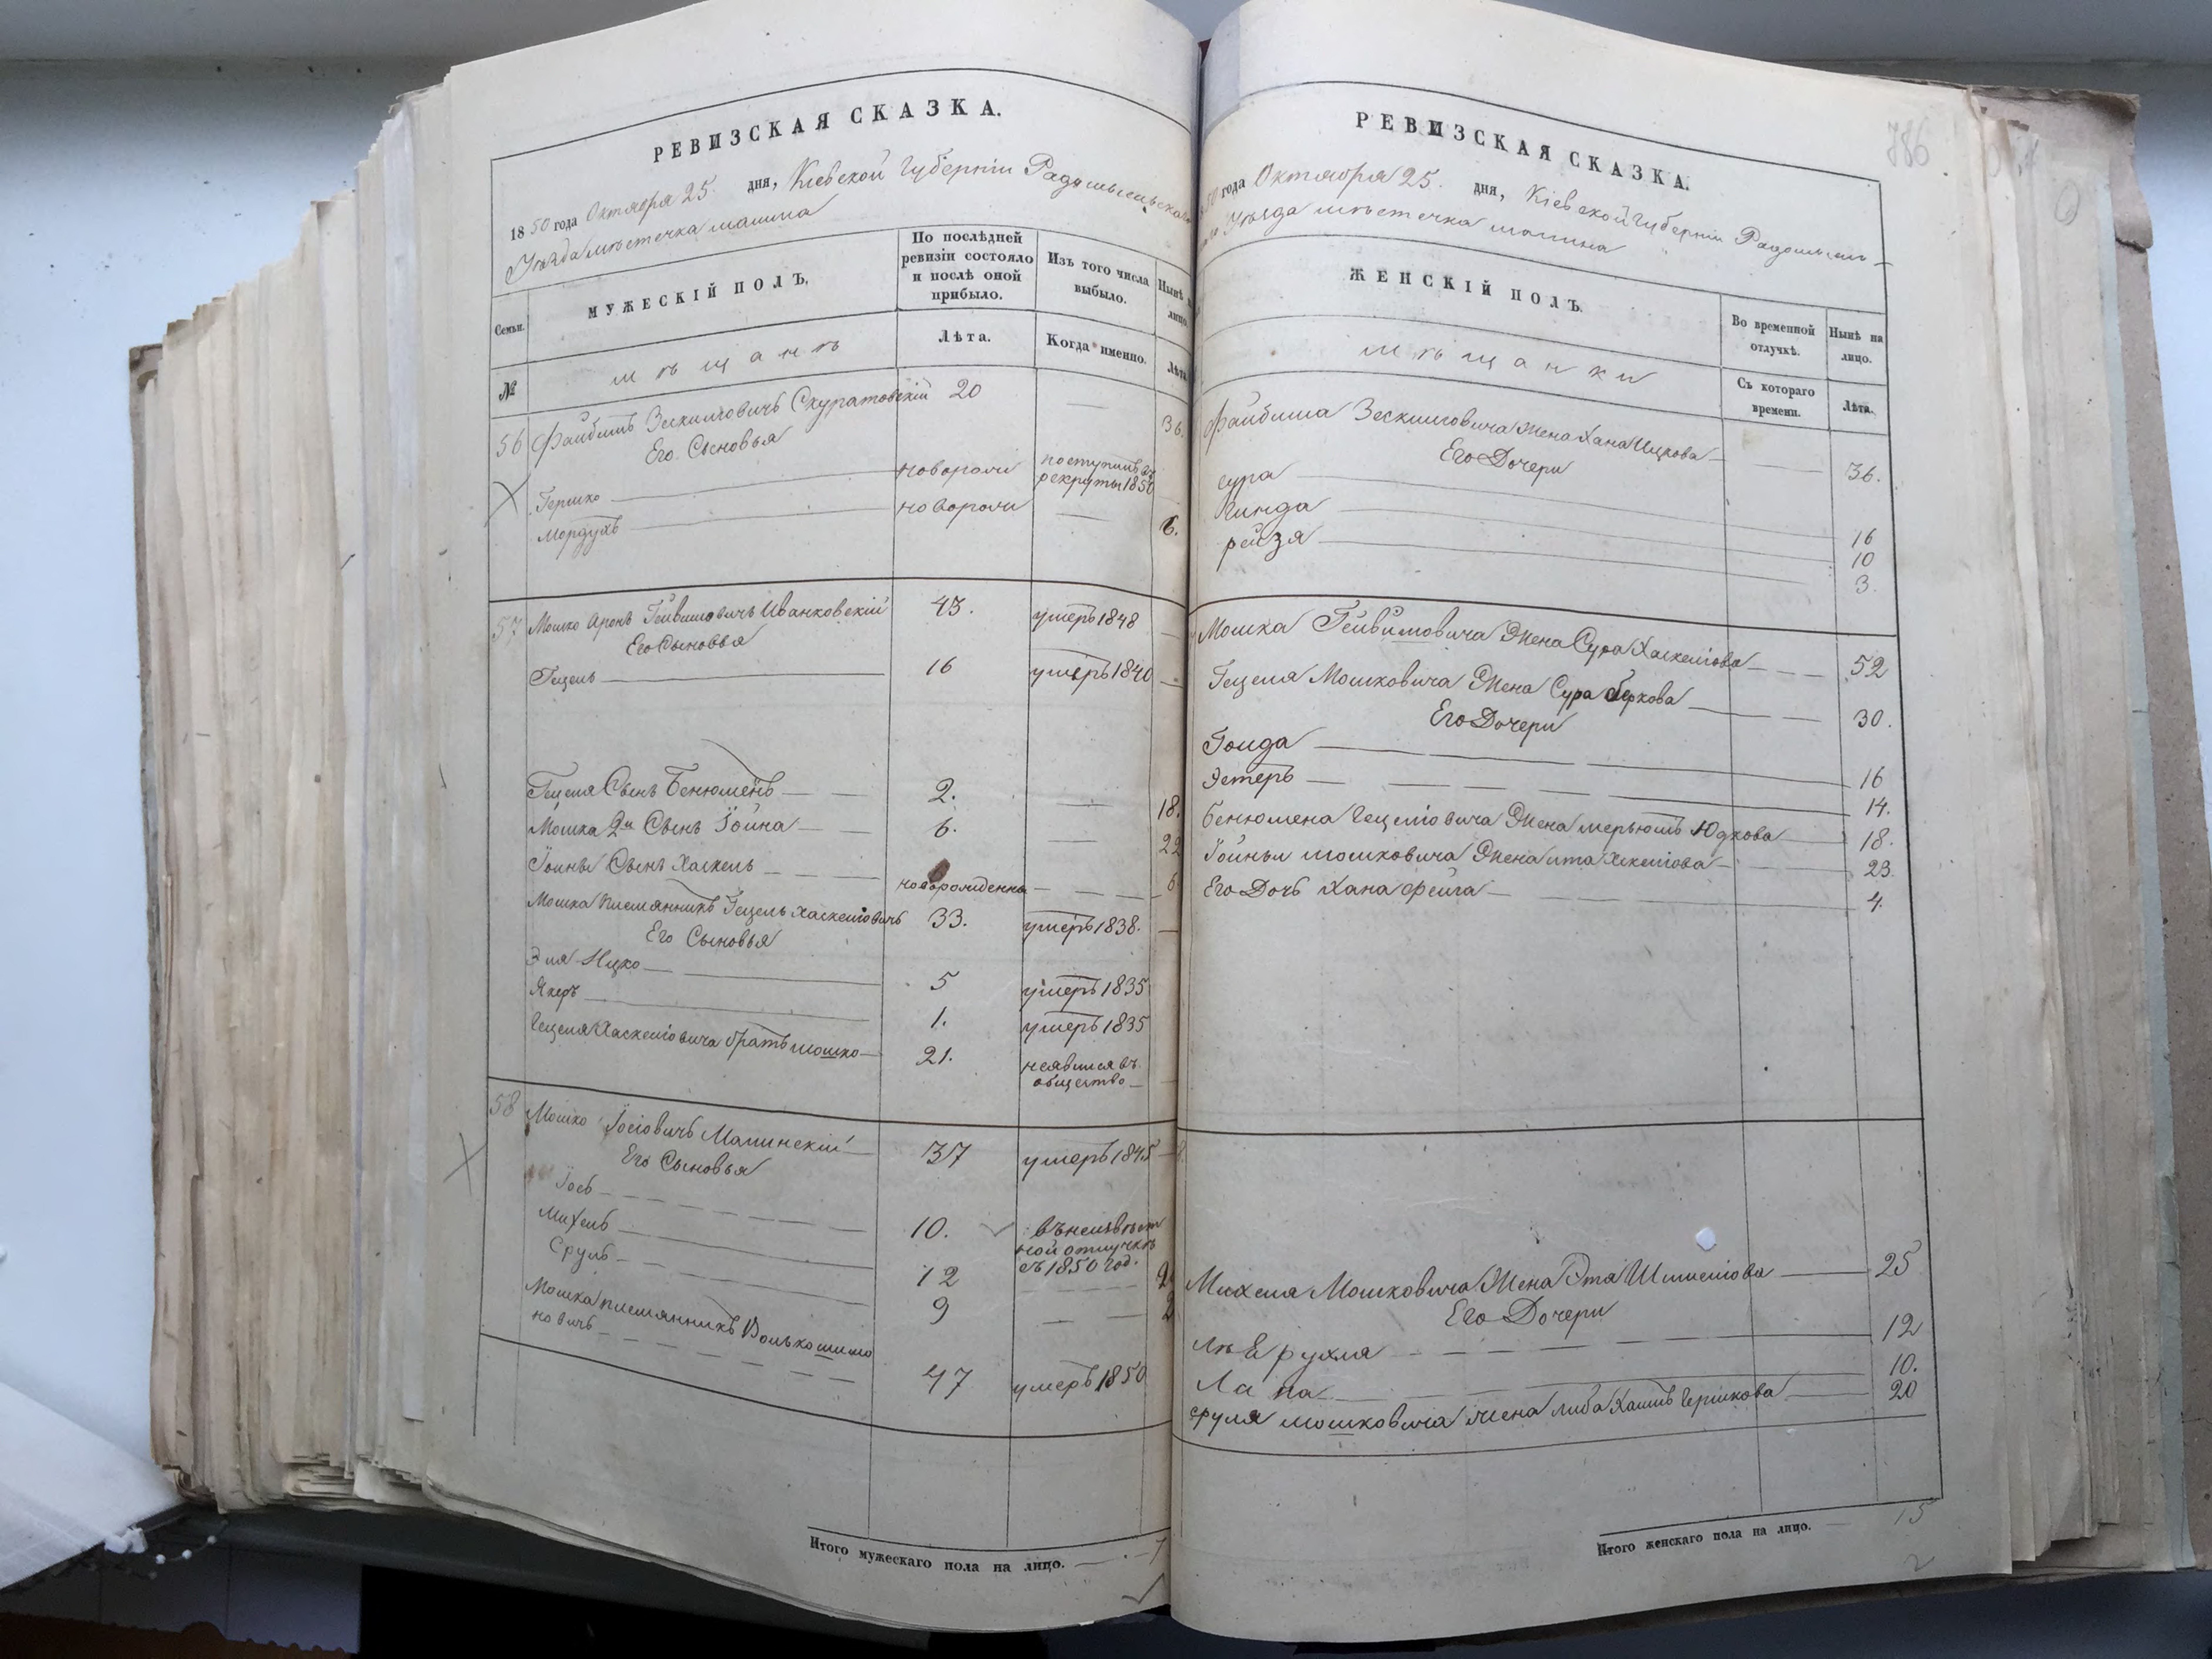 РЕВИЗСКАЯ СКАЗКА.
1850 года Октября 25. дня, Кіевской Губерніи Радомысльскаго
Уѣзда мѣстечка малина
Семьи.
МУЖЕСКІЙ ПОЛЪ,
По послѣдней
ревизіи состояло
и послѣ оной
прибыло.
Изъ того числа
выбыло.
Нынѣ на
лицо.
№
мѣщанъ
Лѣта.
Когда именно.
Лѣта
56 Файбишъ Зескиліовичъ Скуратовскій 20 — 36.
Его Сыновья
Гершко — новорожд поступилъ въ
рекруты 1850
Мордухъ — новорожд — 6.
57 Мошко Аронъ Гейвишовичъ Иванковскій 43. умеръ 1848 —
Его Сыновья
Гецель — 16 умеръ 1840 —
Гецеля Сынъ Бенюмень — — 2. — 18.
Мошка 2й Сынъ Іойна — 6. — 22
Іойны Сынъ Хаскель — — новорожденны — — — 6
Мошка племянникъ Гецель Хаскеліовичъ 33. умеръ 1838. —
Его Сыновья
Эля Ицко — 5 умеръ 1835
Янкеръ — 1. умеръ 1835
Гецеля Хаскеліовича братъ мошко — 21. неявился въ
общество —
58 Мошко Іосіовичъ Малинскій — 37 умеръ 1845 —
Его Сыновья
Іось — — — 10. въ неизвѣст
ной отлучкѣ
съ 1850 год.
Михель — 12
Сруль — 9 — —
Мошка племянникъ Волько шлио
новичъ — — — 47 умеръ 1850
Итого мужескаго пола на лицо. — 7
786
РЕВИЗСКАЯ СКАЗКА.
1850 года Октября 25. дня, Кіевской Губерніи Радомысль-
Уѣзда мѣстечка малина
ЖЕНСКІЙ ПОЛЪ.
Во временной
отлучкѣ.
Нынѣ на
лицо.
мѣщанки
Съ котораго
времени.
Лѣта.
Файбиша Зескиліовича Жена Хана Ицкова — 36.
Его Дочери
сура — 16
Гинда — 10
рейзя — 3.
Мошка Гейвишовича Жена Сура Хаскеліова — — 52
Гецеля Мошковича Жена Сура Беркова — — 30.
Его Дочери
Голда — 16
Эстеръ — — — 14.
Бенюмена Гецеліовича Жена мерьюмъ Юдкова — 18.
Іойны мошковича Жена ита Хаскеліова — 23.
Его Дочь Хана фейга — 4.
Михеля Мошковича Жена Эта Шмиеліова — 25
Его Дочери
— — — 12
— 10.
Сруля мошковича жена либа Хаитъ Гершкова — 20
Итого женскаго пола на лицо. — 15